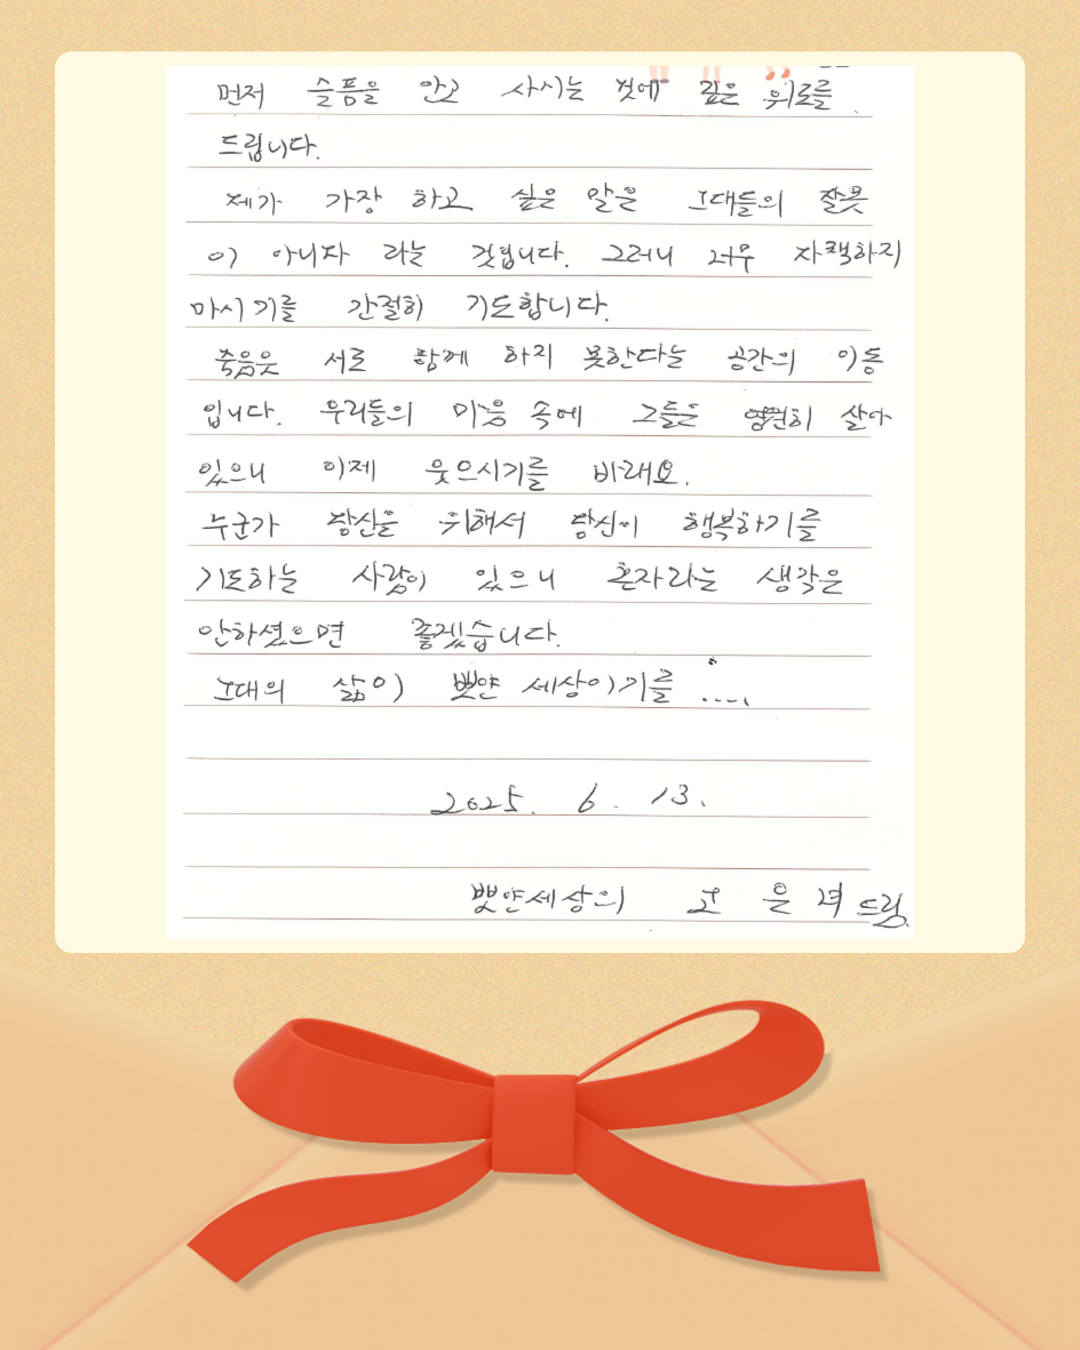 먼저 슬픔을 안고 사시는 것에 깊은 위로를
드립니다.
제가 가장 하고 싶은 말은 그대들의 잘못
이 아니다 라는 것입니다. 그러니 너무 자책하지
마시기를 간절히 기도합니다.
죽음은 서로 함께 하지 못한다는 공간의 이동
입니다. 우리들의 마음 속에 그들은 영원히 살아
있으니 이제 웃으시기를 바래요.
누군가 당신을 위해서 당신이 행복하기를
기도하는 사람이 있으니 혼자라는 생각은
안하셨으면 좋겠습니다.
그대의 삶이 뽀얀 세상이기를 ....
2025. 6. 13.
뽀얀세상의 고 은 녀 드림.